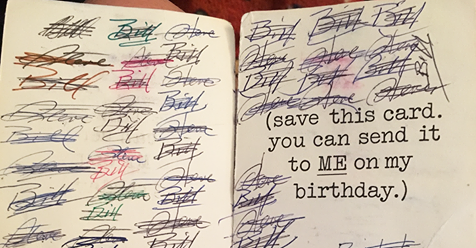 Bill Bill Steve
Steve Steve Bill
Bill Bill Steve
Steve Steve Bill
Steve Bill Steve
Bill Steve Bill
Steve Bill Steve
Bill Steve Bill
Bill Steve
Bill Bill Bill
Steve Steve Steve
Bill Bill Bill
Steve Steve Steve
Bill
(save this card.
you can send it
to ME on my
birthday.)
Steve
Bill
Steve
Bill